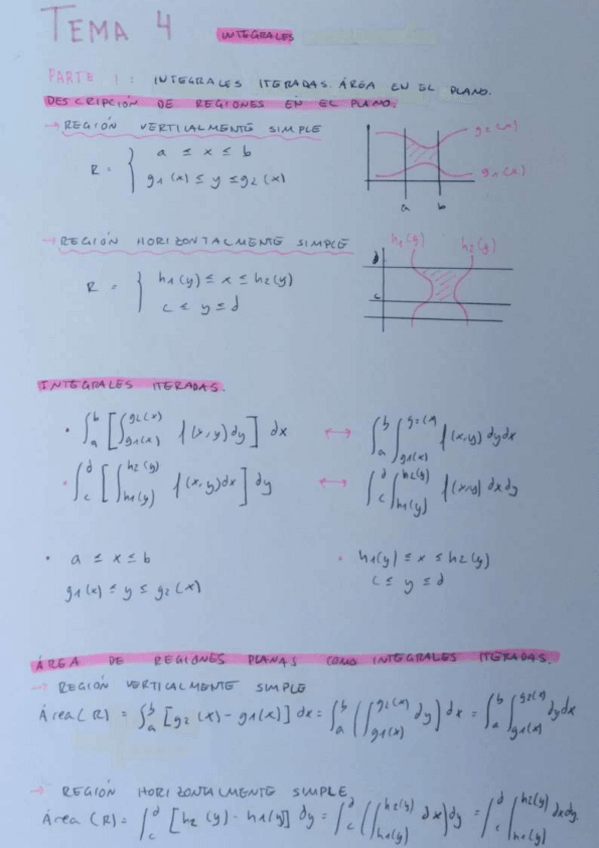 TEMA 4 INTEGRALES
PARTE 1: INTEGRALES ITERADAS. ÁREA EN EL PLANO.
DESCRIPCIÓN DE REGIONES EN EL PLANO.
→ REGIÓN VERTICALMENTE SIMPLE
R = { a ≤ x ≤ b
g1(x) ≤ y ≤ g2(x)
g2(x)
g1(x)
a b
→ REGIÓN HORIZONTALMENTE SIMPLE
R = { h1(y) ≤ x ≤ h2(y)
c ≤ y ≤ d
h1(y) h2(y)
d
c
INTEGRALES ITERADAS.
• ∫_a^b [∫_{g1(x)}^{g2(x)} f(x,y)dy] dx ↔ ∫_a^b ∫_{g1(x)}^{g2(x)} f(x,y) dydx
• ∫_c^d [∫_{h1(y)}^{h2(y)} f(x,y)dx] dy ↔ ∫_c^d ∫_{h1(y)}^{h2(y)} f(x,y) dxdy
• a ≤ x ≤ b
g1(x) ≤ y ≤ g2(x)
• h1(y) ≤ x ≤ h2(y)
c ≤ y ≤ d
ÁREA DE REGIONES PLANAS COMO INTEGRALES ITERADAS.
→ REGIÓN VERTICALMENTE SIMPLE
Área(R) = ∫_a^b [g2(x) - g1(x)] dx = ∫_a^b (∫_{g1(x)}^{g2(x)} dy) dx = ∫_a^b ∫_{g1(x)}^{g2(x)} dydx
→ REGIÓN HORIZONTALMENTE SIMPLE
Área (R) = ∫_c^d [h2(y) - h1(y)] dy = ∫_c^d (∫_{h1(y)}^{h2(y)} dx) dy = ∫_c^d ∫_{h1(y)}^{h2(y)} dxdy